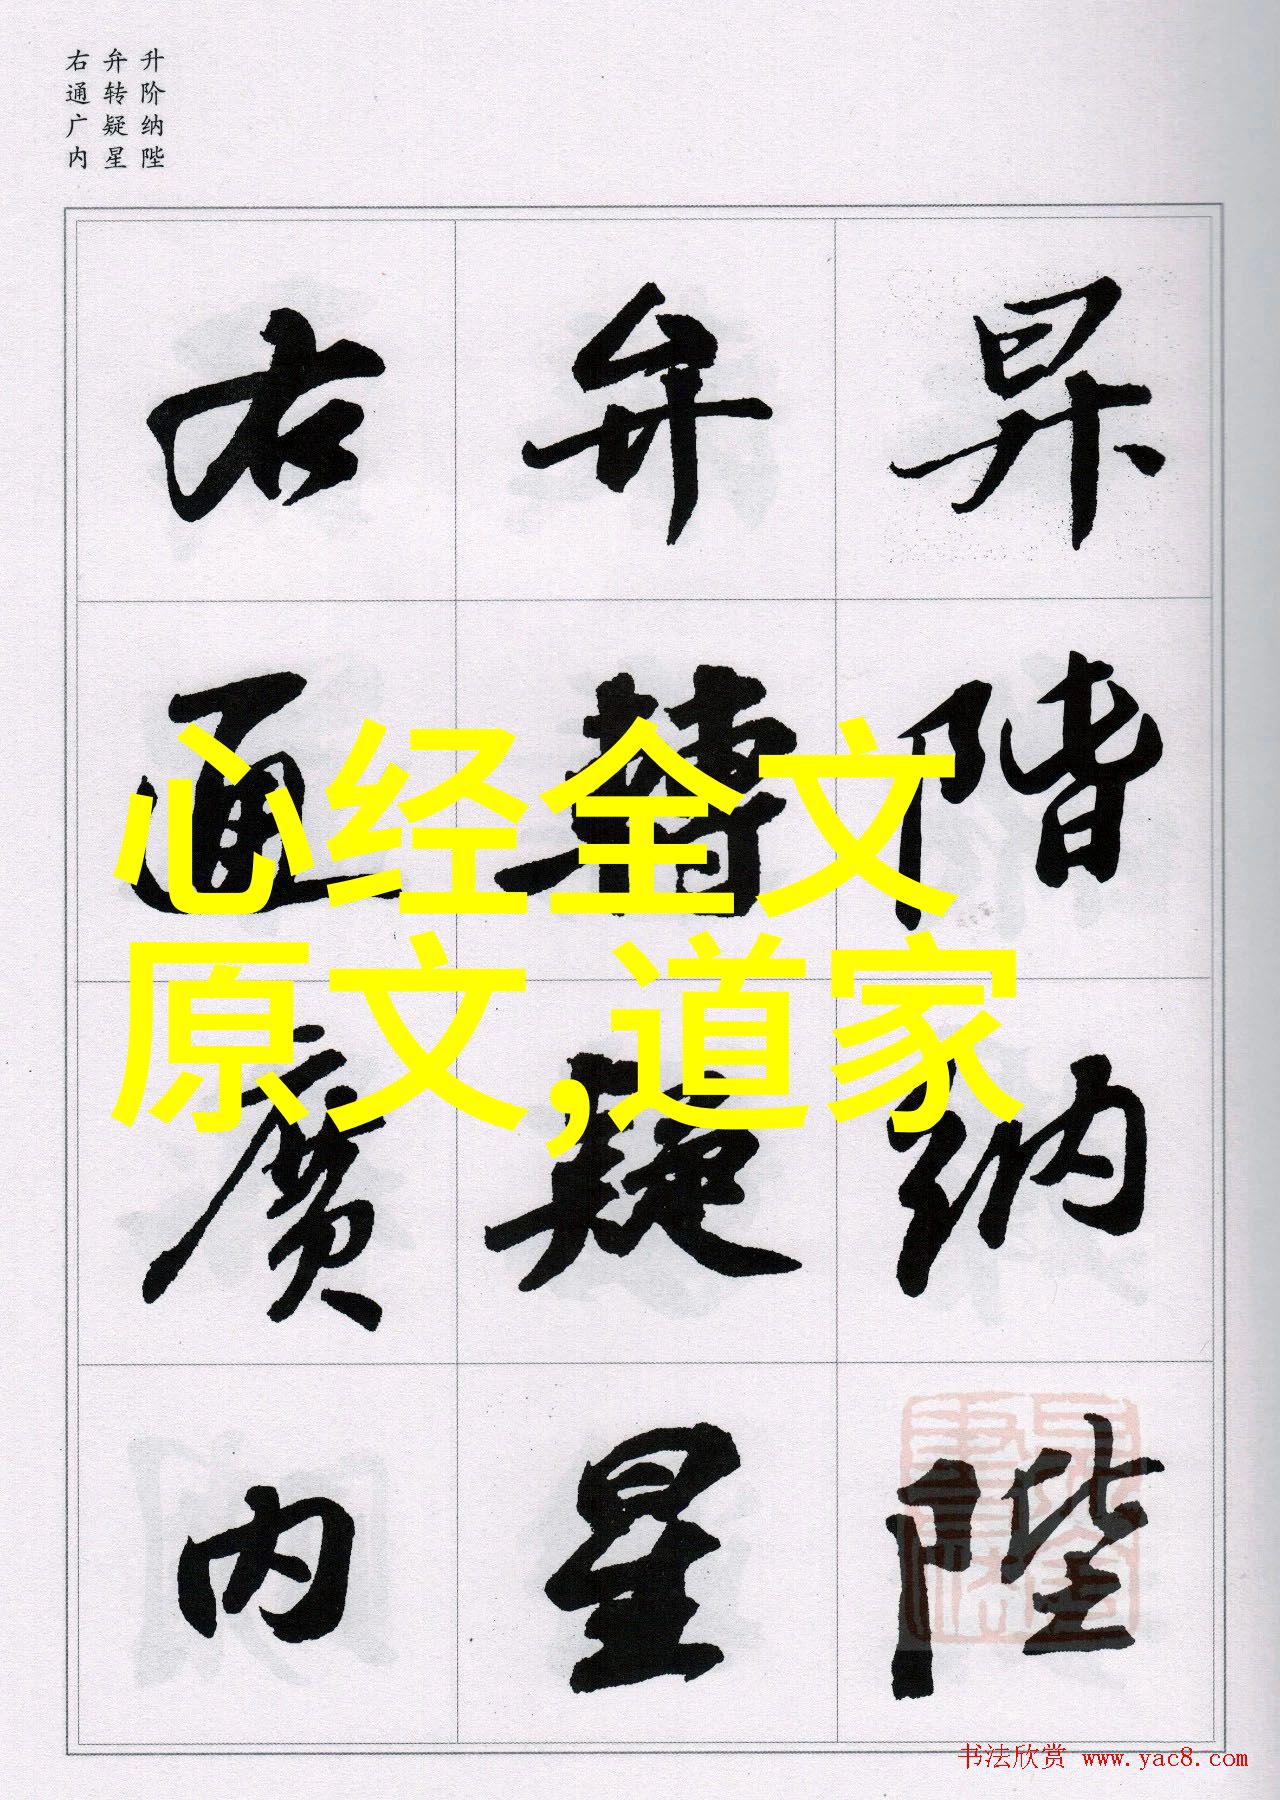 升阶纳陛
弁转疑星
右通广内
昇階納陛
弁轉疑星
右通廣內
心经全文
原文,道家
书法欣赏 www.yac8.com